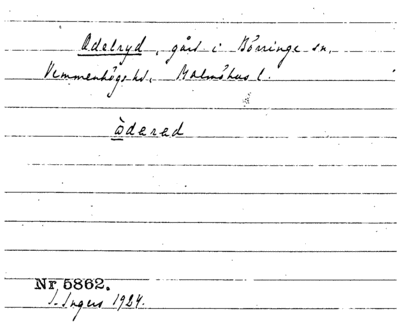 Odelryd, gård i Börringe sn,
Vemmenhögs hd, Malmöhus l.
òdered
Nr 5862.
I. Ingers 1924.